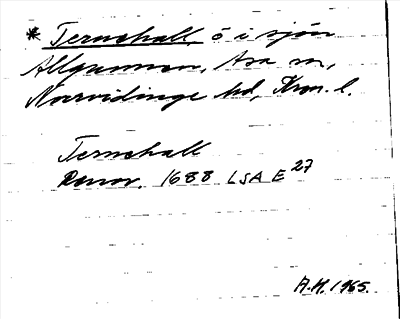 * Ternehall, ö i sjön
Allgunnen, Asa sn,
Norrvidinge hd, Kron. l.
Ternehall
Renov. 1688 LSA E 27
A.H. 1965.